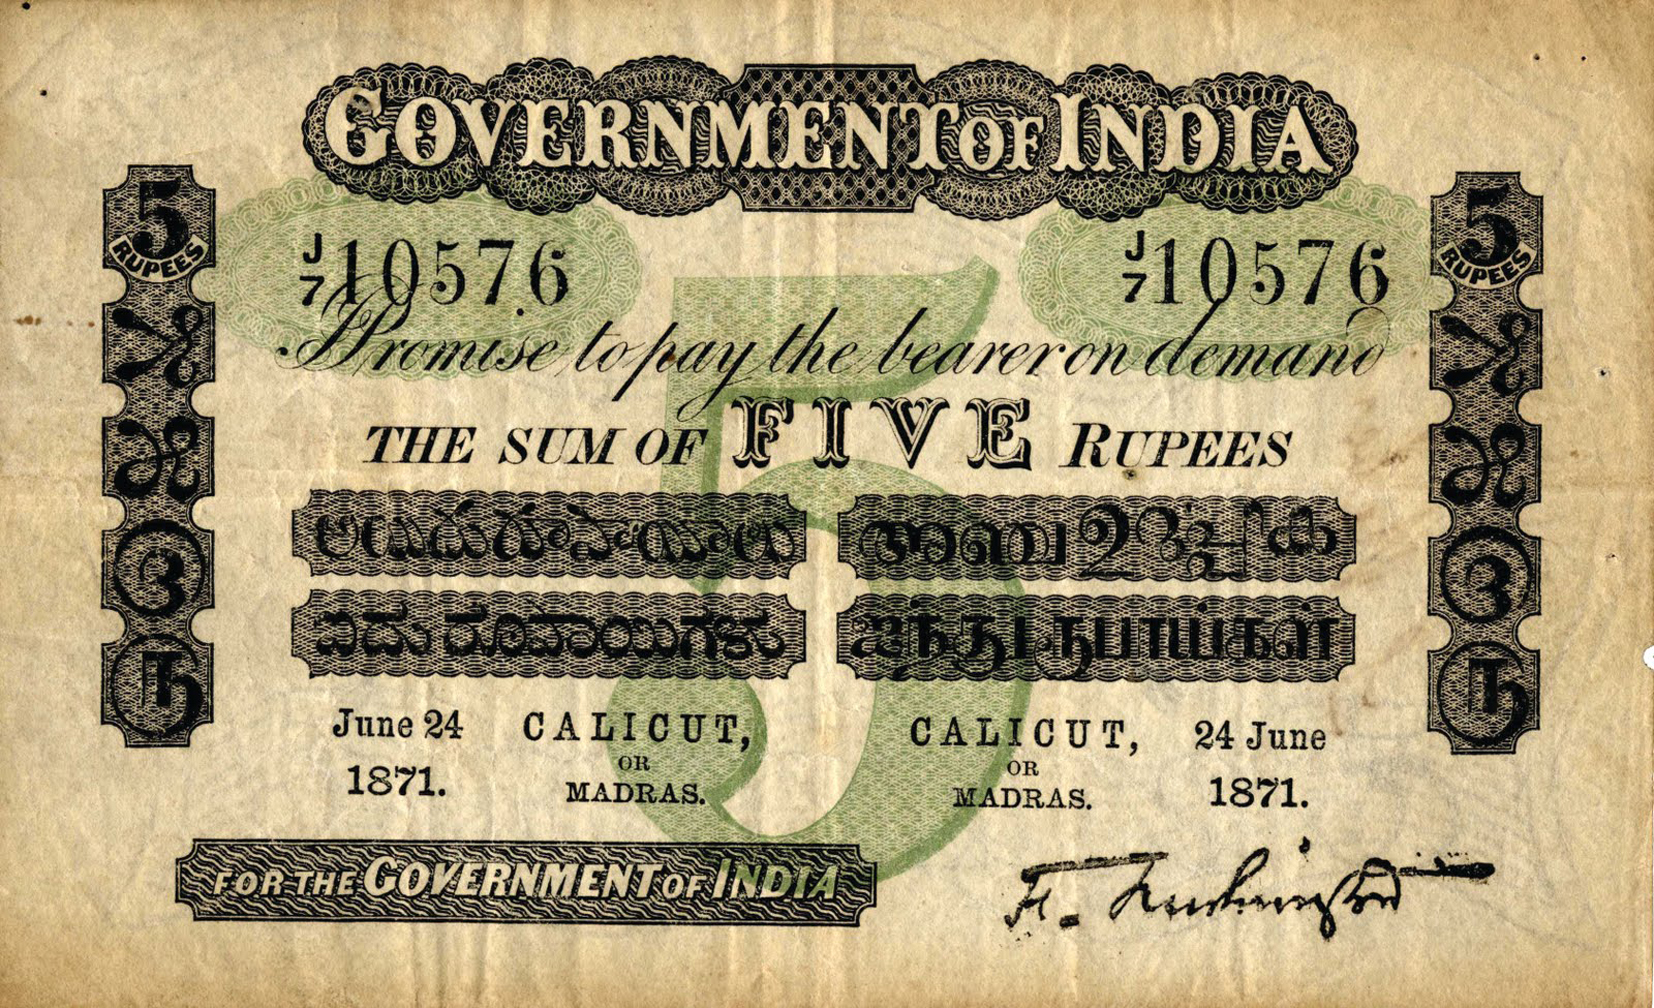 GOVERNMENT OF INDIA
5 RUPEES
5 RUPEES
J/7 10576
J/7 10576
I Promise to pay the bearer on demand
THE SUM OF FIVE RUPEES
ఐదు
ഉറുപ്പിക
ಐದು ರೂಪಾಯಿಗಳು
ஐந்து ரூபாய்கள்
June 24 1871.
CALICUT,
OR
MADRAS.
CALICUT,
OR
MADRAS.
24 June 1871.
FOR THE GOVERNMENT OF INDIA